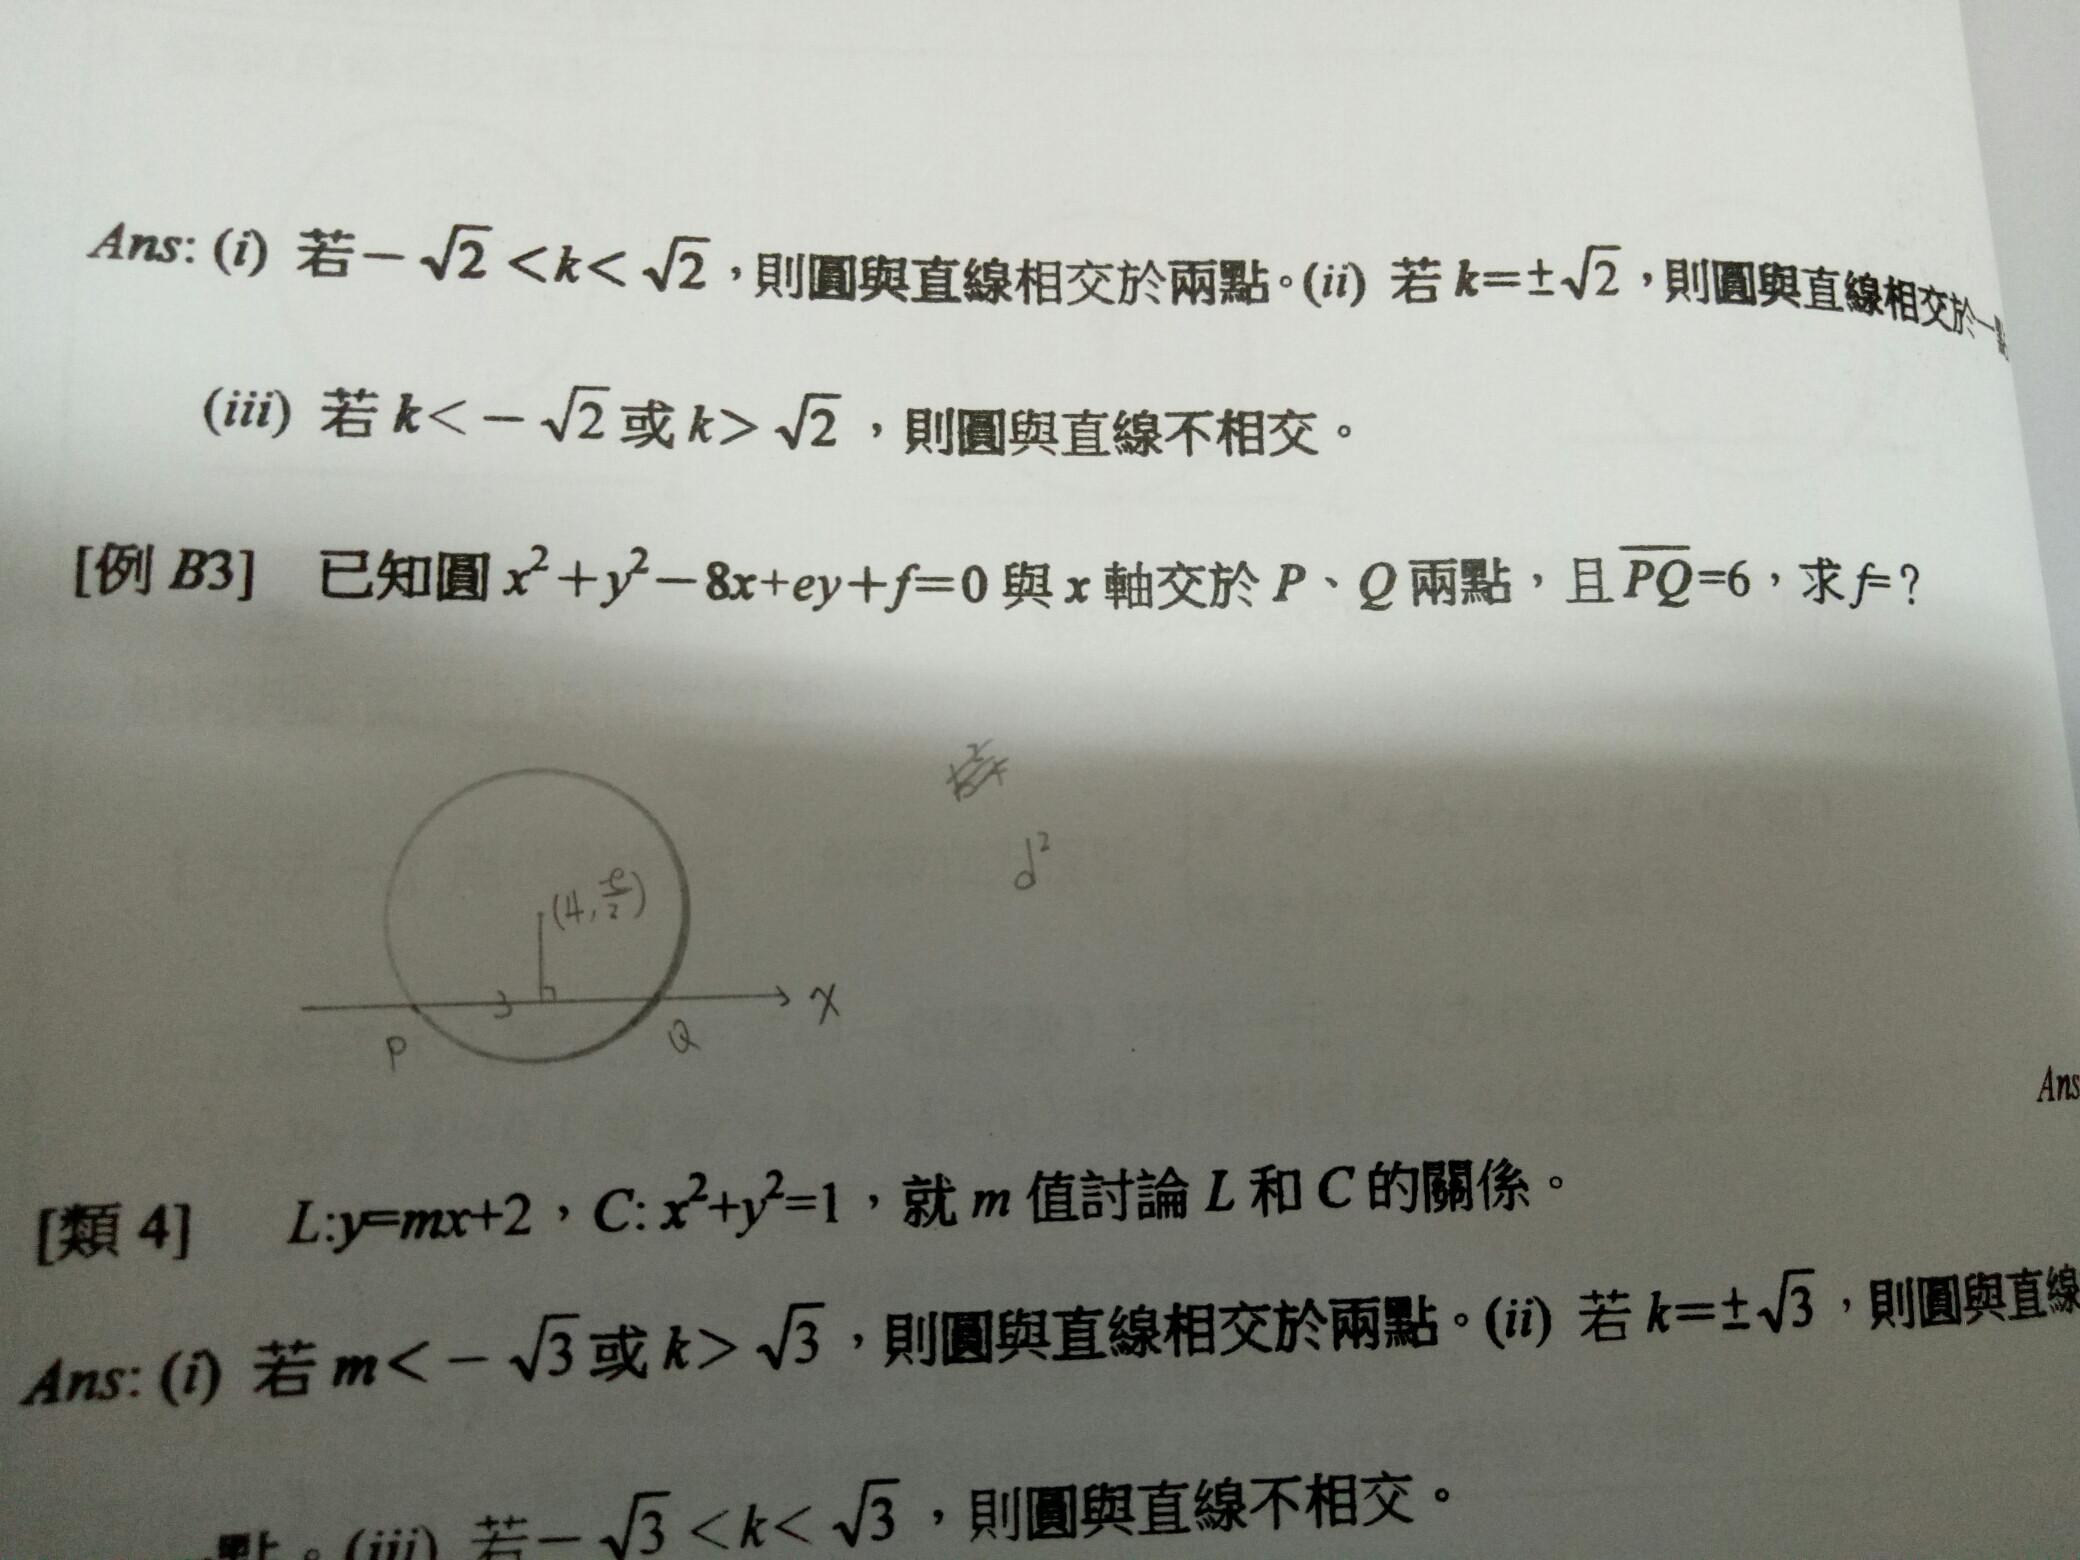 Ans: (i) 若－√2＜k＜√2，則圓與直線相交於兩點。(ii) 若 k=±√2，則圓與直線相交於一點
(iii) 若 k＜－√2或 k＞√2，則圓與直線不相交。
[例 B3] 已知圓 x²+y²－8x+ey+f=0 與 x 軸交於 P、Q 兩點，且 PQ=6，求 f=?
d²
(4, e/2)
3
x
P
Q
Ans
[類 4] L:y=mx+2，C: x²+y²=1，就 m 值討論 L 和 C 的關係。
Ans: (i) 若 m＜－√3或 k＞√3，則圓與直線相交於兩點。(ii) 若 k=±√3，則圓與直線
點。(iii) 若－√3＜k＜√3，則圓與直線不相交。